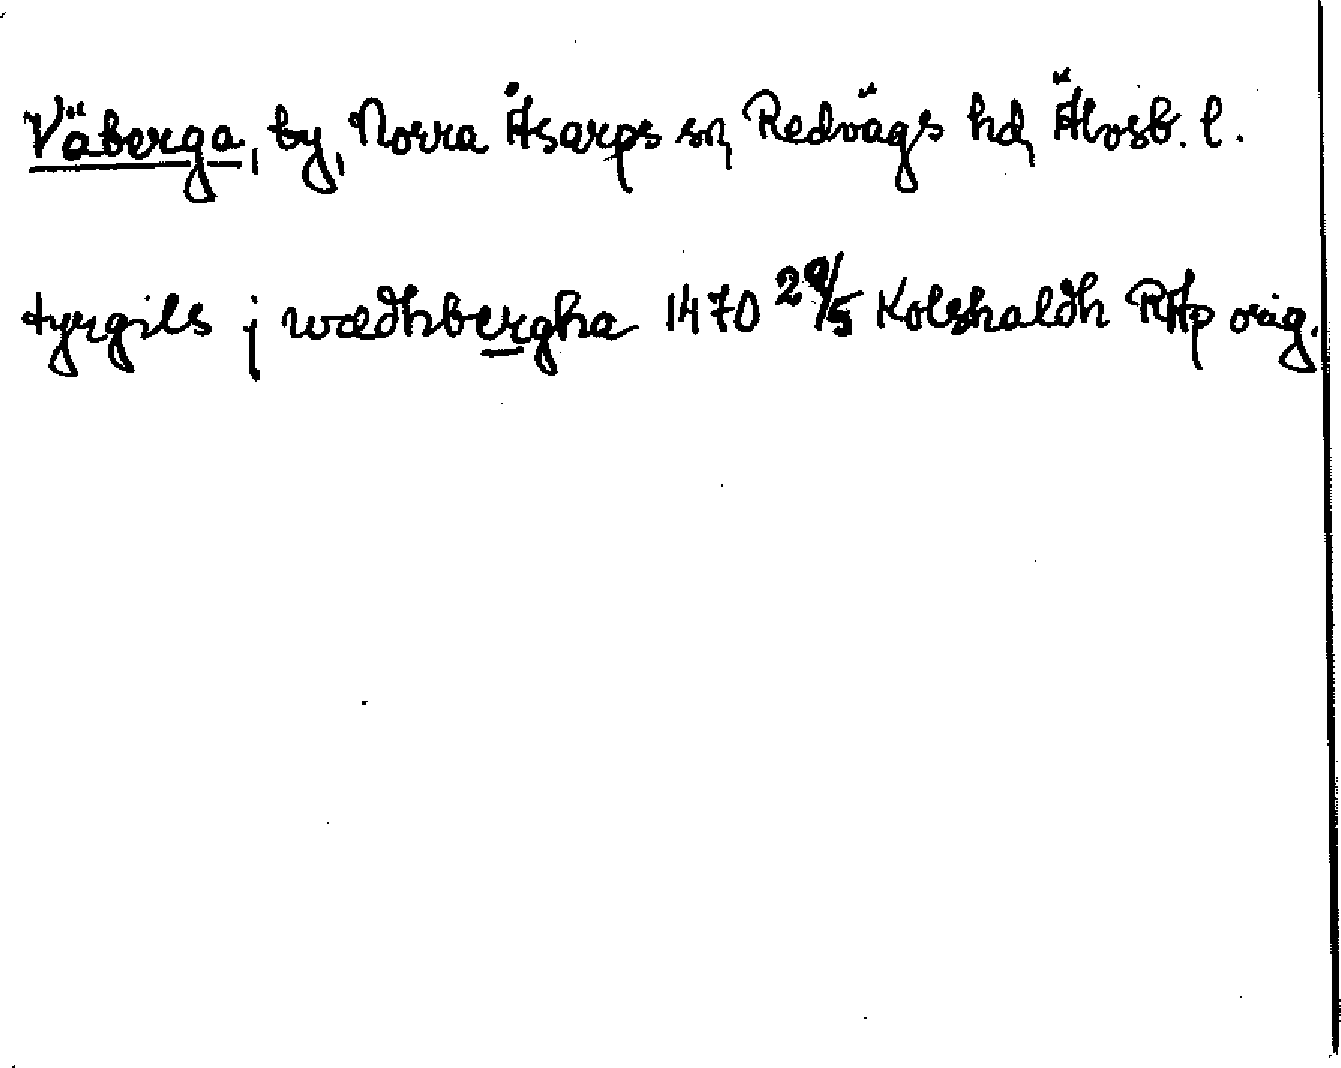 Väberga, by, Norra Åsarps sn, Redvägs hd, Älvsb. l.
tyrgils j wædhbergha 1470 29/5 Kolshaldh RAp orig.